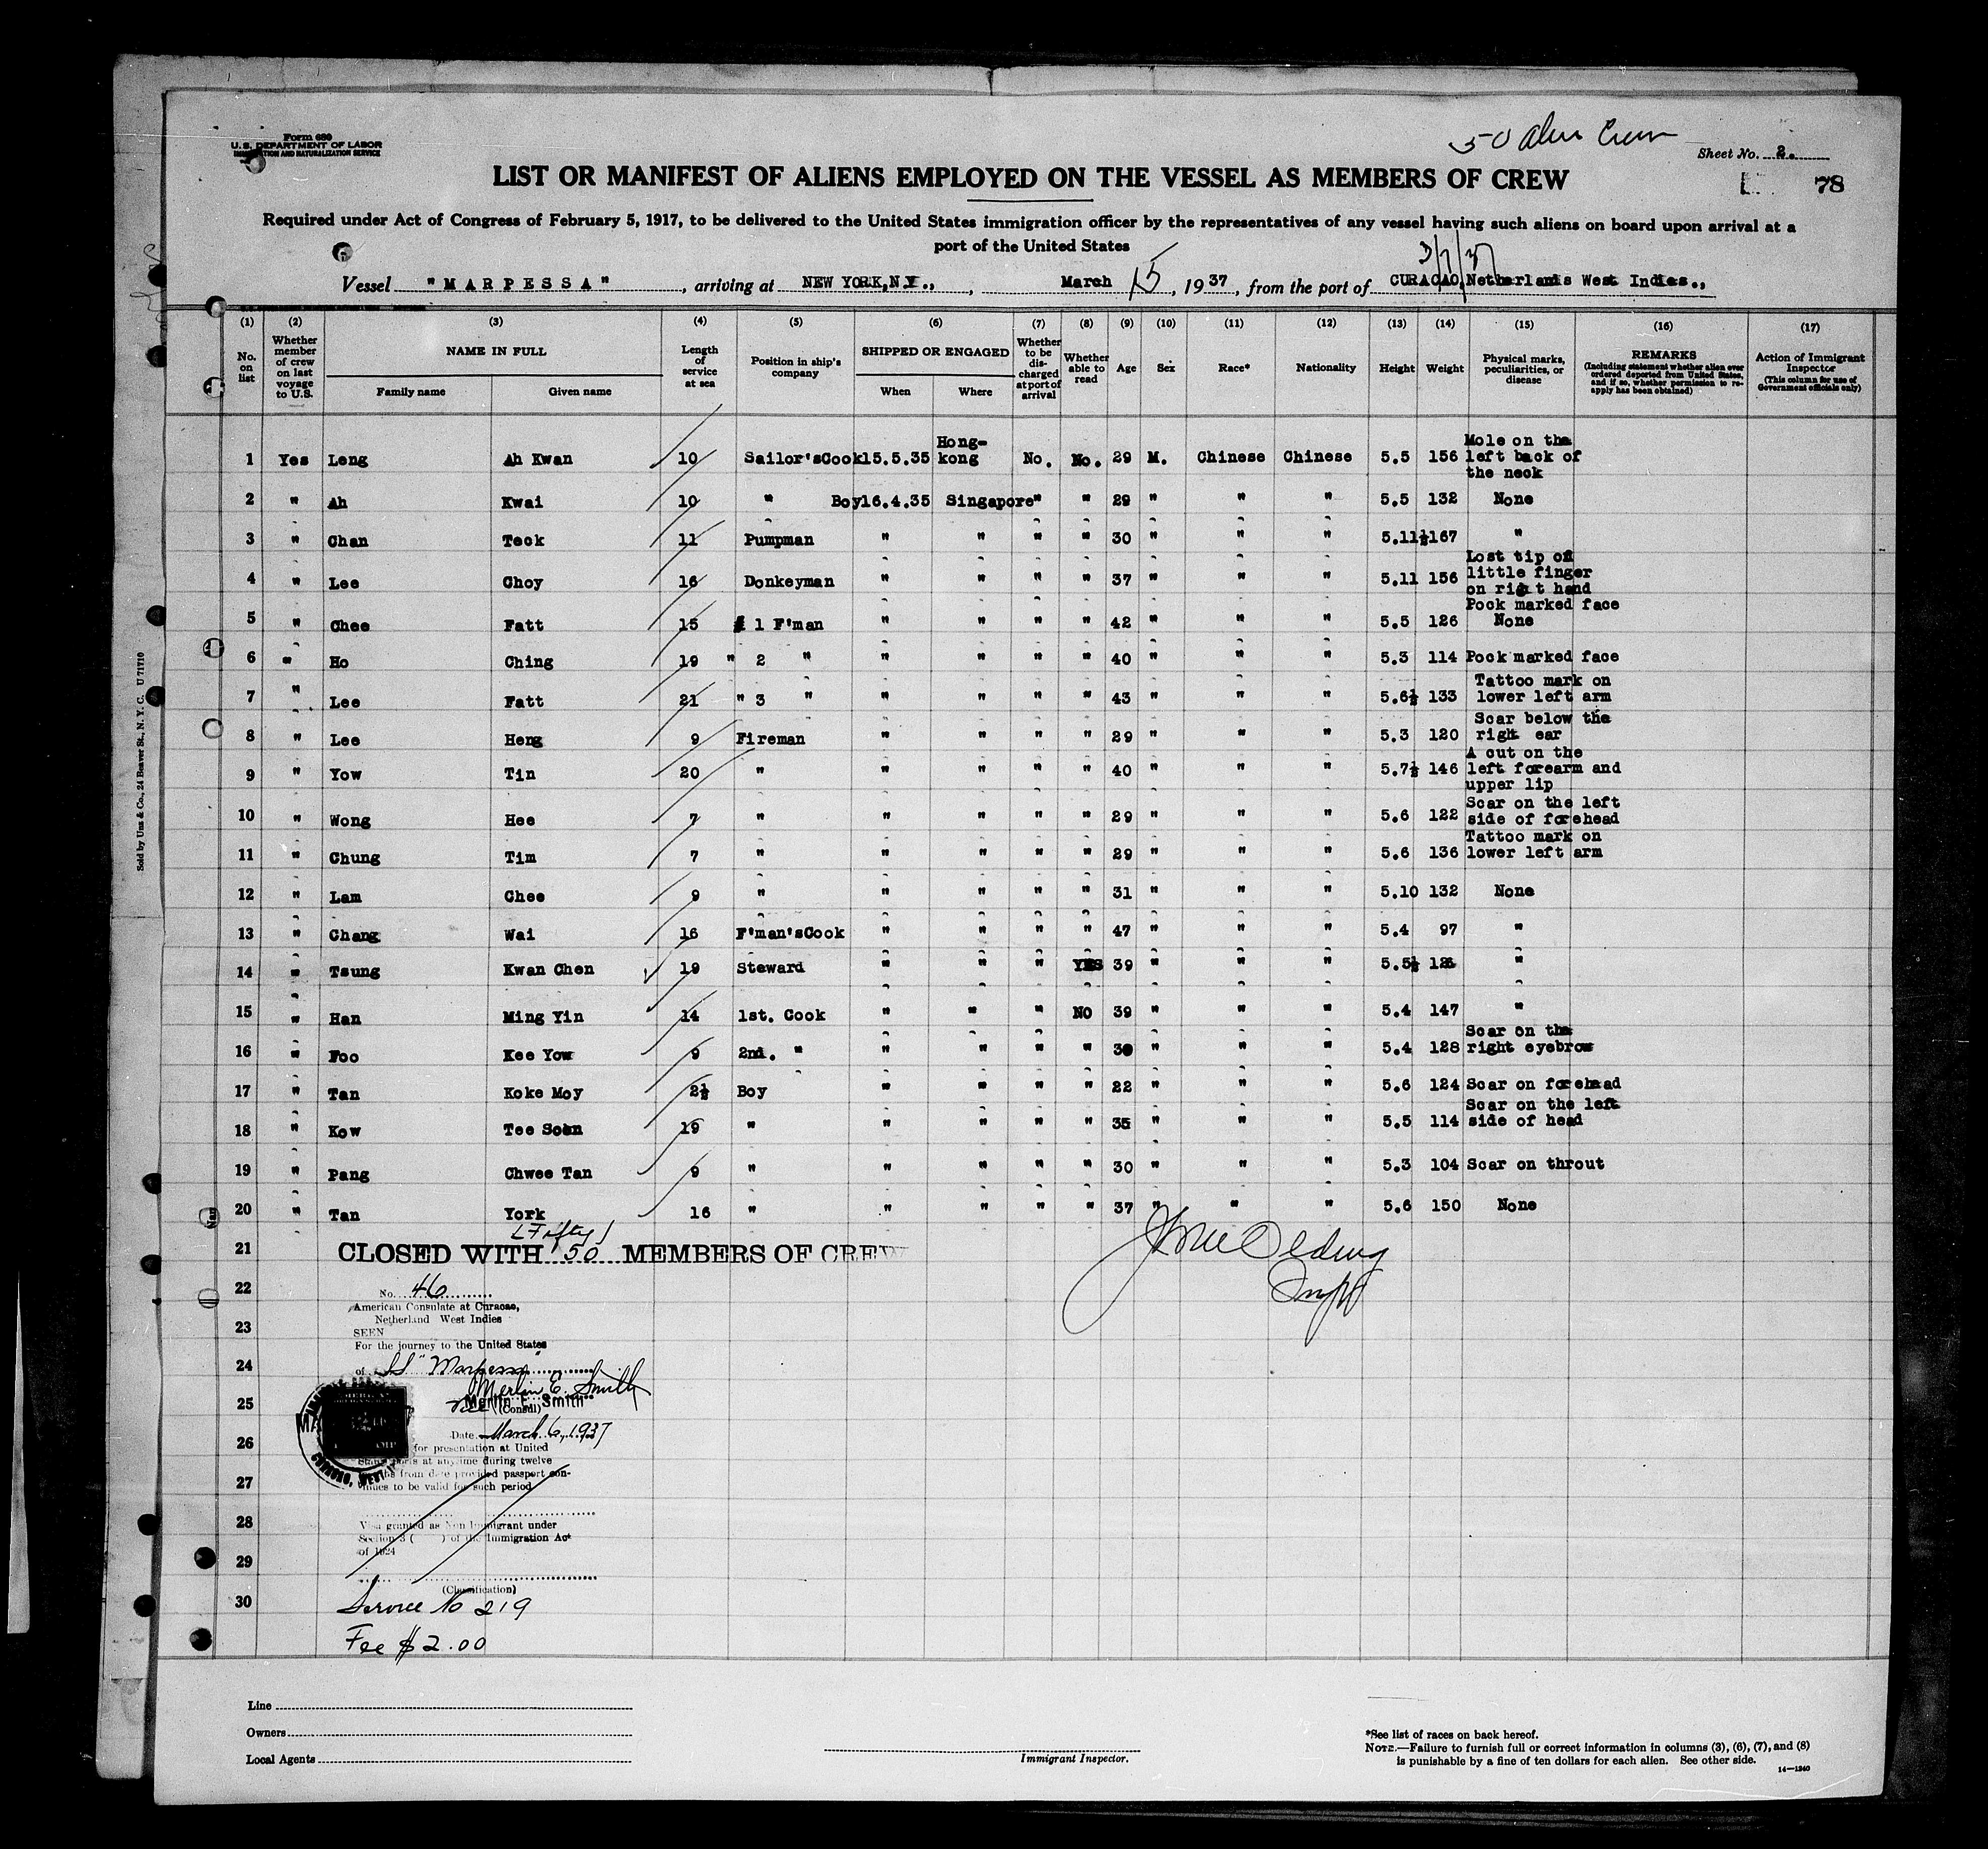 Form 680
U. S. DEPARTMENT OF LABOR
IMMIGRATION AND NATURALIZATION SERVICE
50 Alien Crew
Sheet No. 2.
78
LIST OR MANIFEST OF ALIENS EMPLOYED ON THE VESSEL AS MEMBERS OF CREW
Required under Act of Congress of February 5, 1917, to be delivered to the United States immigration officer by the representatives of any vessel having such aliens on board upon arrival at a
port of the United States
3/7/37
Vessel "MARPESSA", arriving at NEW YORK,N.Y., , March 15, 1937, from the port of CURACAO,Netherlands West Indies.,
(1) (2) (3) (4) (5) (6) (7) (8) (9) (10) (11) (12) (13) (14) (15) (16) (17)
No. on list
Whether member of crew on last voyage to U.S.
NAME IN FULL
Family name Given name
Length of service at sea
Position in ship's company
SHIPPED OR ENGAGED
When Where
Whether to be discharged at port of arrival
Whether able to read
Age
Sex
Race*
Nationality
Height
Weight
Physical marks, peculiarities, or disease
REMARKS
(Including statement whether alien ever ordered deported from United States, and if so, whether permission to reapply has been obtained)
Action of Immigrant Inspector
(This column for use of Government officials only)
1 Yes Leng Ah Kwan 10 Sailor'sCook 15.5.35 Hong-kong No. No. 29 M. Chinese Chinese 5.5 156 Mole on the left back of the neck
2 " Ah Kwai 10 " Boy 16.4.35 Singapore " " 29 " " " 5.5 132 None
3 " Chan Teck 11 Pumpman " " " " 30 " " " 5.11½ 167 "
4 " Lee Choy 16 Donkeyman " " " " 37 " " " 5.11 156 Lost tip of little finger on right hand
5 " Chee Fatt 15 # 1 F'man " " " " 42 " " " 5.5 126 Pock marked face None
6 " Ho Ching 19 " 2 " " " " " 40 " " " 5.3 114 Pock marked face
7 " Lee Fatt 21 " 3 " " " " " 43 " " " 5.6½ 133 Tattoo mark on lower left arm
8 " Lee Heng 9 Fireman " " " " 29 " " " 5.3 120 Scar below the right ear
9 " Yow Tin 20 " " " " " 40 " " " 5.7½ 146 A cut on the left forearm and upper lip
10 " Wong Hee 7 " " " " " 29 " " " 5.6 122 Scar on the left side of forehead
11 " Chung Tim 7 " " " " " 29 " " " 5.6 136 Tattoo mark on lower left arm
12 " Lam Chee 9 " " " " " 31 " " " 5.10 132 None
13 " Chang Wai 16 F'man'sCook " " " " 47 " " " 5.4 97 "
14 " Tsung Kwan Chen 19 Steward " " " YES 39 " " " 5.5½ 126 "
15 " Han Ming Yin 14 1st. Cook " " " NO 39 " " " 5.4 147 "
16 " Foo Kee Yow 9 2nd. " " " " " 30 " " " 5.4 128 Scar on the right eyebrow
17 " Tan Koke Moy 2½ Boy " " " " 22 " " " 5.6 124 Scar on forehead
18 " Kow Tee Soon 19 " " " " " 35 " " " 5.5 114 Scar on the left side of head
19 " Pang Chwee Tan 9 " " " " " 30 " " " 5.3 104 Scar on throut
20 " Tan York 16 " " " " " 37 " " " 5.6 150 None
21
(Fifty)
CLOSED WITH 50 MEMBERS OF CREW
22
No. 46
American Consulate at Curacao,
Netherland West Indies
23
SEEN
For the journey to the United States
24
of SS "Marpessa"
Merlin E. Smith
25
Merlin E. Smith
Vice (Consul)
Date March 6, 1937
26
for presentation at United
States ports at anytime during twelve
months from date provided passport con-
27
tinues to be valid for such period
28
Visa granted as Non Immigrant under
Section 3 ( ) of the Immigration Act
of 1924
29
(Classification)
30
Service No 219
Fee $ 2.00
Line
Owners
Local Agents
Immigrant Inspector.
*See list of races on back hereof.
NOTE.—Failure to furnish full or correct information in columns (3), (6), (7), and (8)
is punishable by a fine of ten dollars for each alien. See other side.
14—1240
Sold by Unz & Co., 24 Beaver St., N. Y. C. U 71710